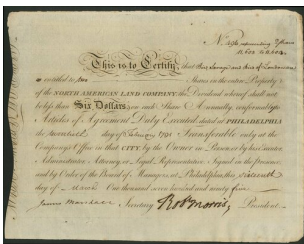 No.
This is to Certify that
is entitled to two Shares in the entire Property
of the NORTH AMERICAN LAND COMPANY, the Dividend whereof shall not
be less than Six Dollars on each Share Annually, conformably to
Articles of Agreement Duly Executed dated at PHILADELPHIA
the day of February 1795 Transferable only at the
Company's Office in that CITY, by the Owner in Person or by his Executor
Administrator Attorney or Legal Representative Signed in the presence
and by Order of the Board of Managers at Philadelphia this sixteenth
day of March One thousand seven hundred and ninety five
James Marshall Secretary Robt Morris President